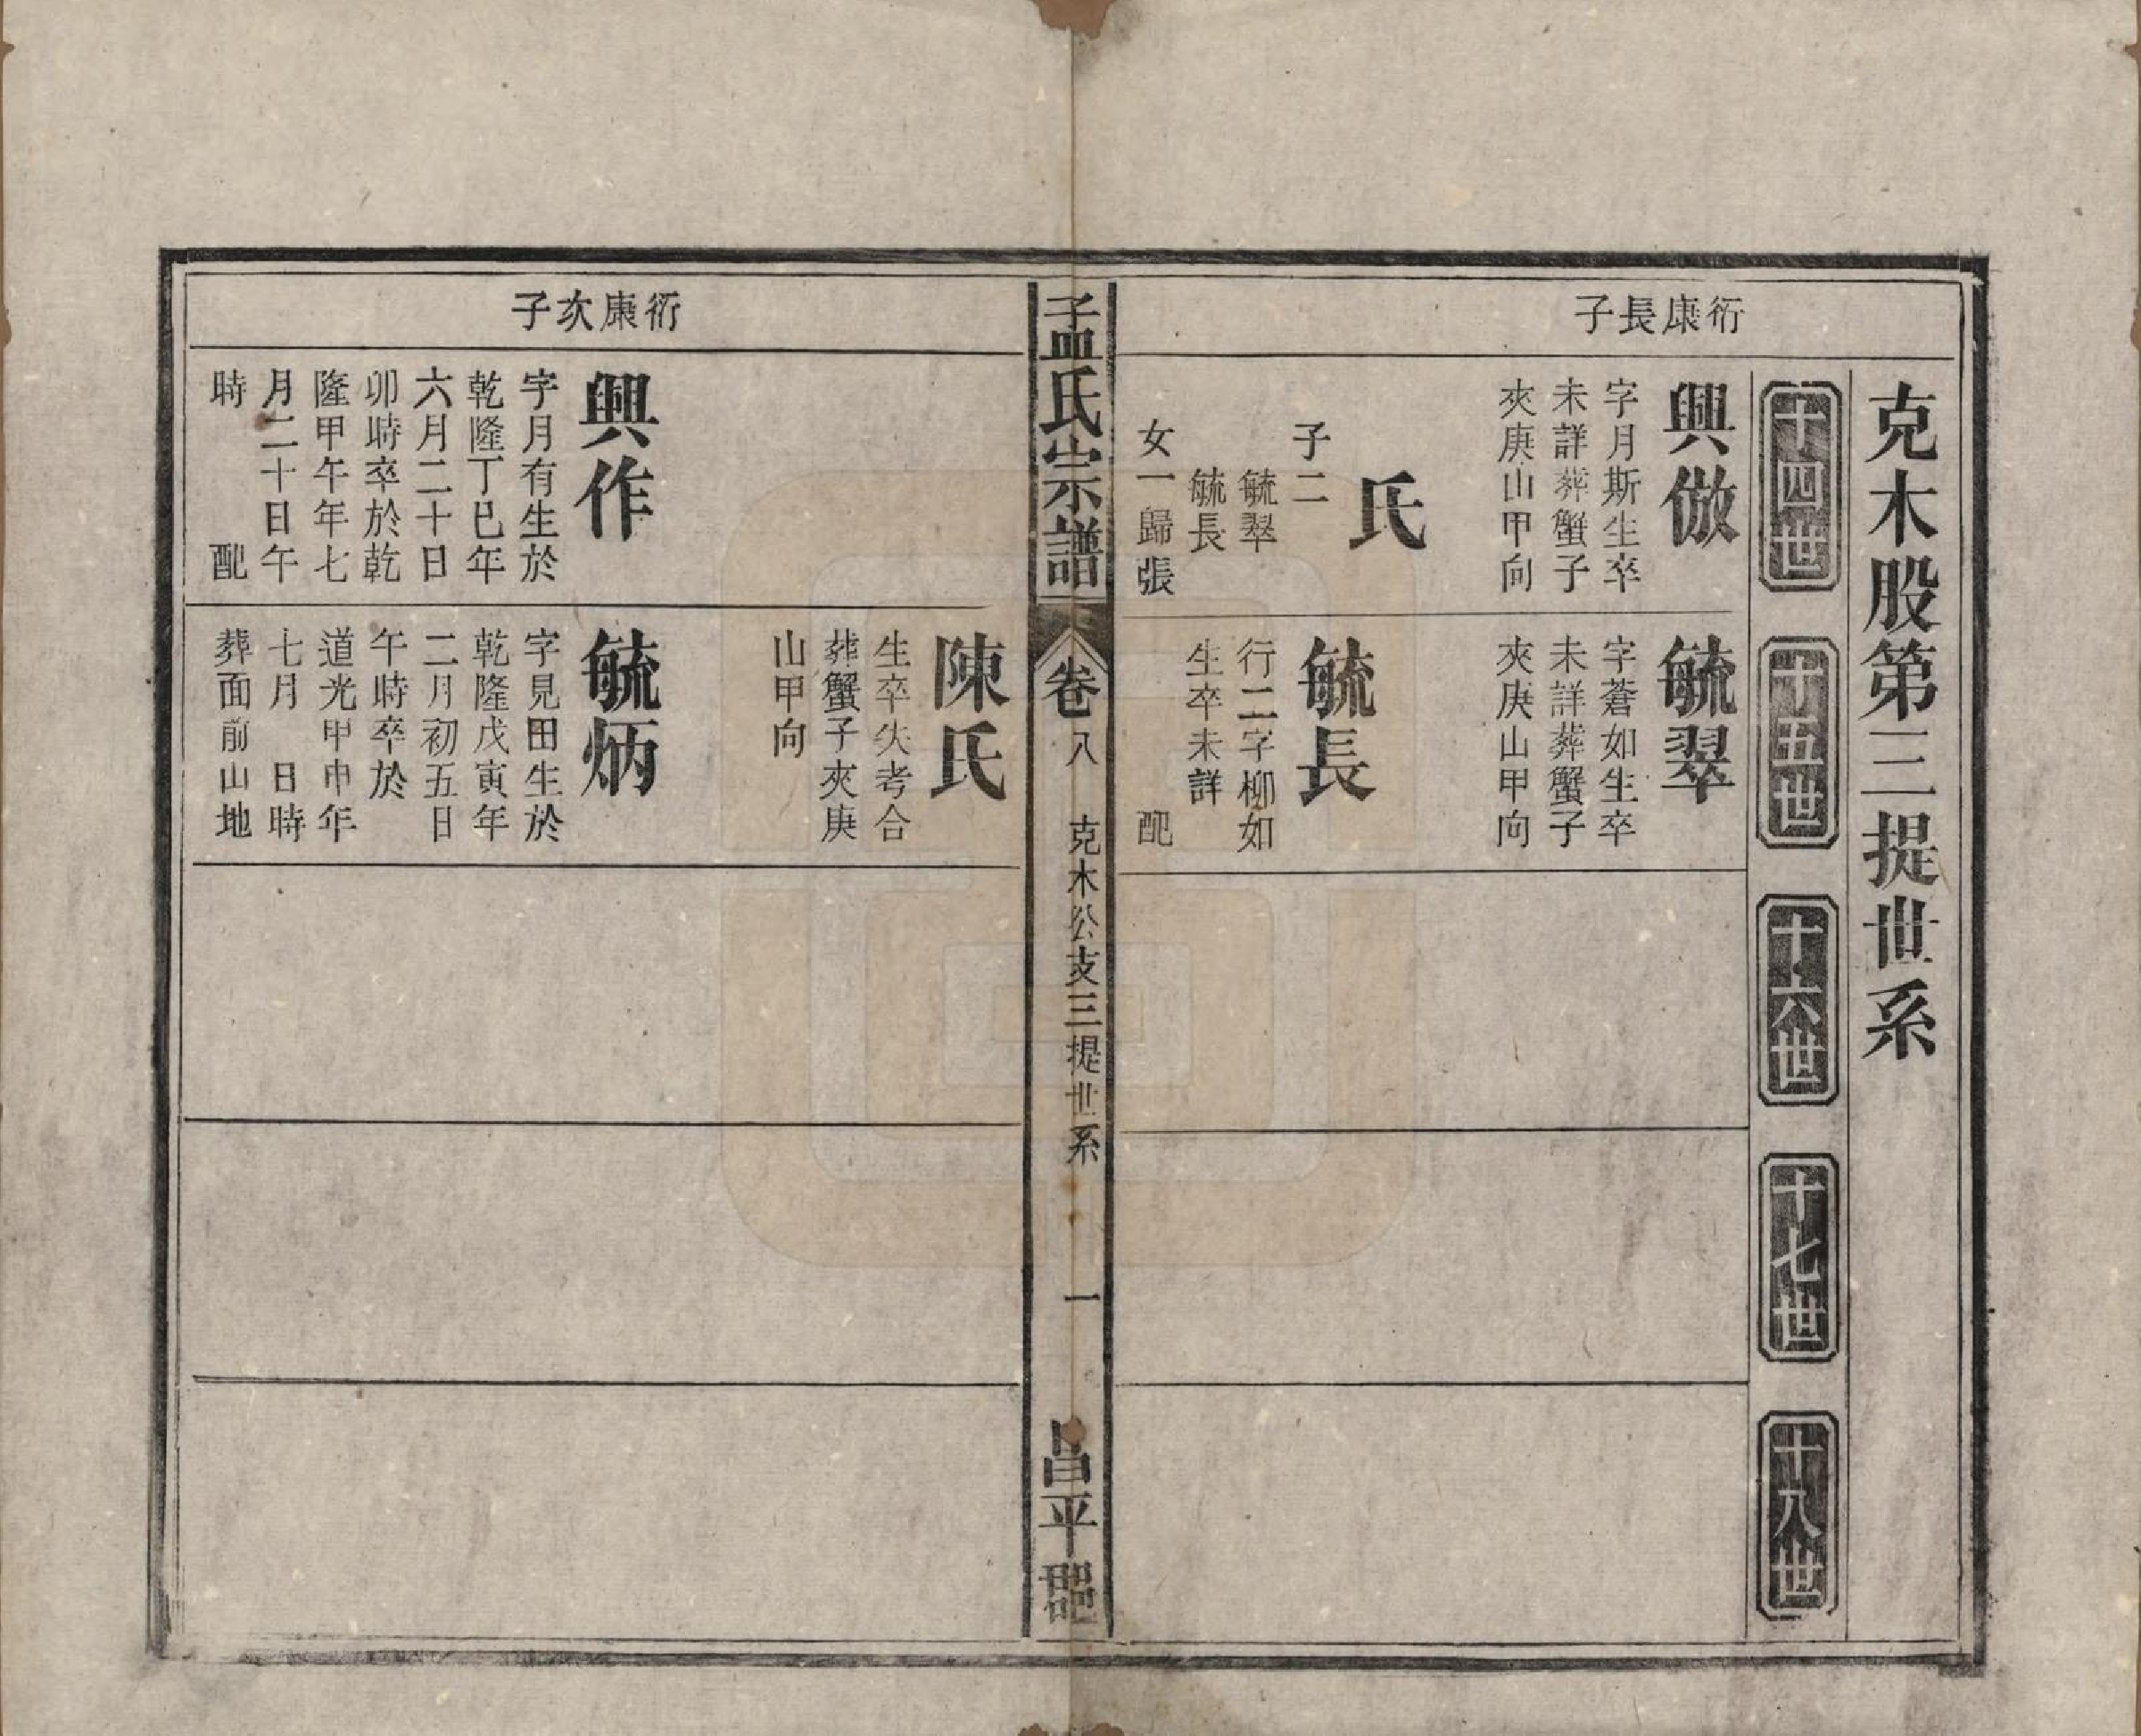 克木股第三提世系
十四世
十五世
十六世
十七世
十八世
衍康長子
興倣
字月斯生卒
未詳葬蟹子
夾庚山甲向
氏
子二
毓翠
毓長
女一歸張
毓翠
字蒼如生卒
未詳葬蟹子
夾庚山甲向
毓長
行二字柳如
生卒未詳
配
孟氏宗譜
卷八
克木公支三提世系
一
昌平郡
陳氏
生卒失考合
葬蟹子夾庚
山甲向
衍康次子
興作
字月有生於
乾隆丁巳年
六月二十日
卯時卒於乾
隆甲午年七
月二十日午
時 配
毓炳
字見田生於
乾隆戊寅年
二月初五日
午時卒於
道光甲申年
七月 日時
葬面前山地